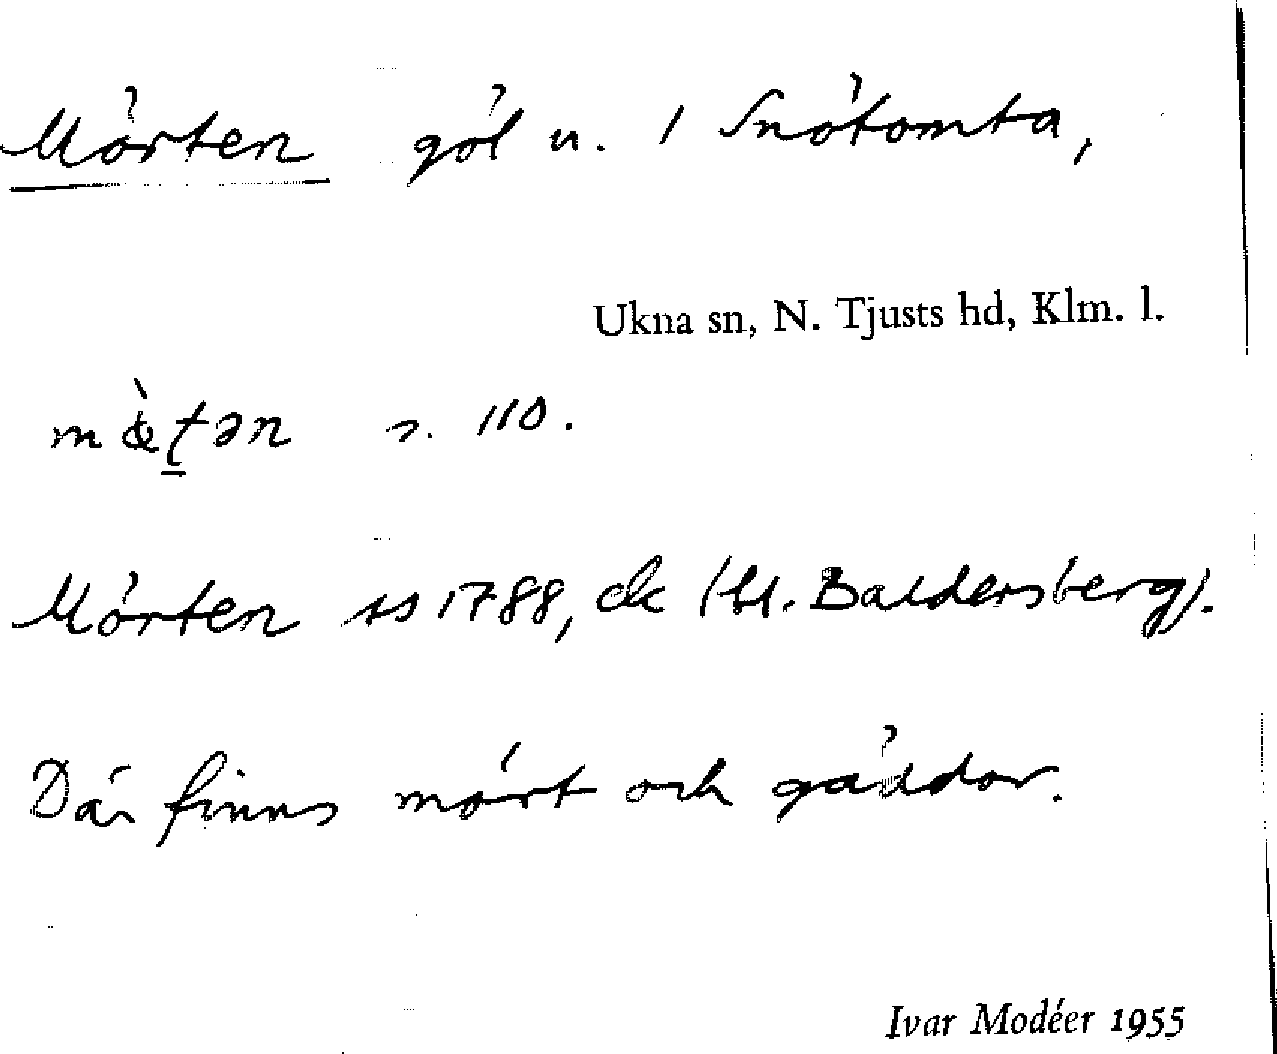 Mörten göl u. 1 Snötomta,
Ukna sn, N. Tjusts hd, Klm. l.
s. 110.
Mörten ss 1788, ek (bl. Baldersberg).
Där finns mört och gäddor.
Ivar Modéer 1955